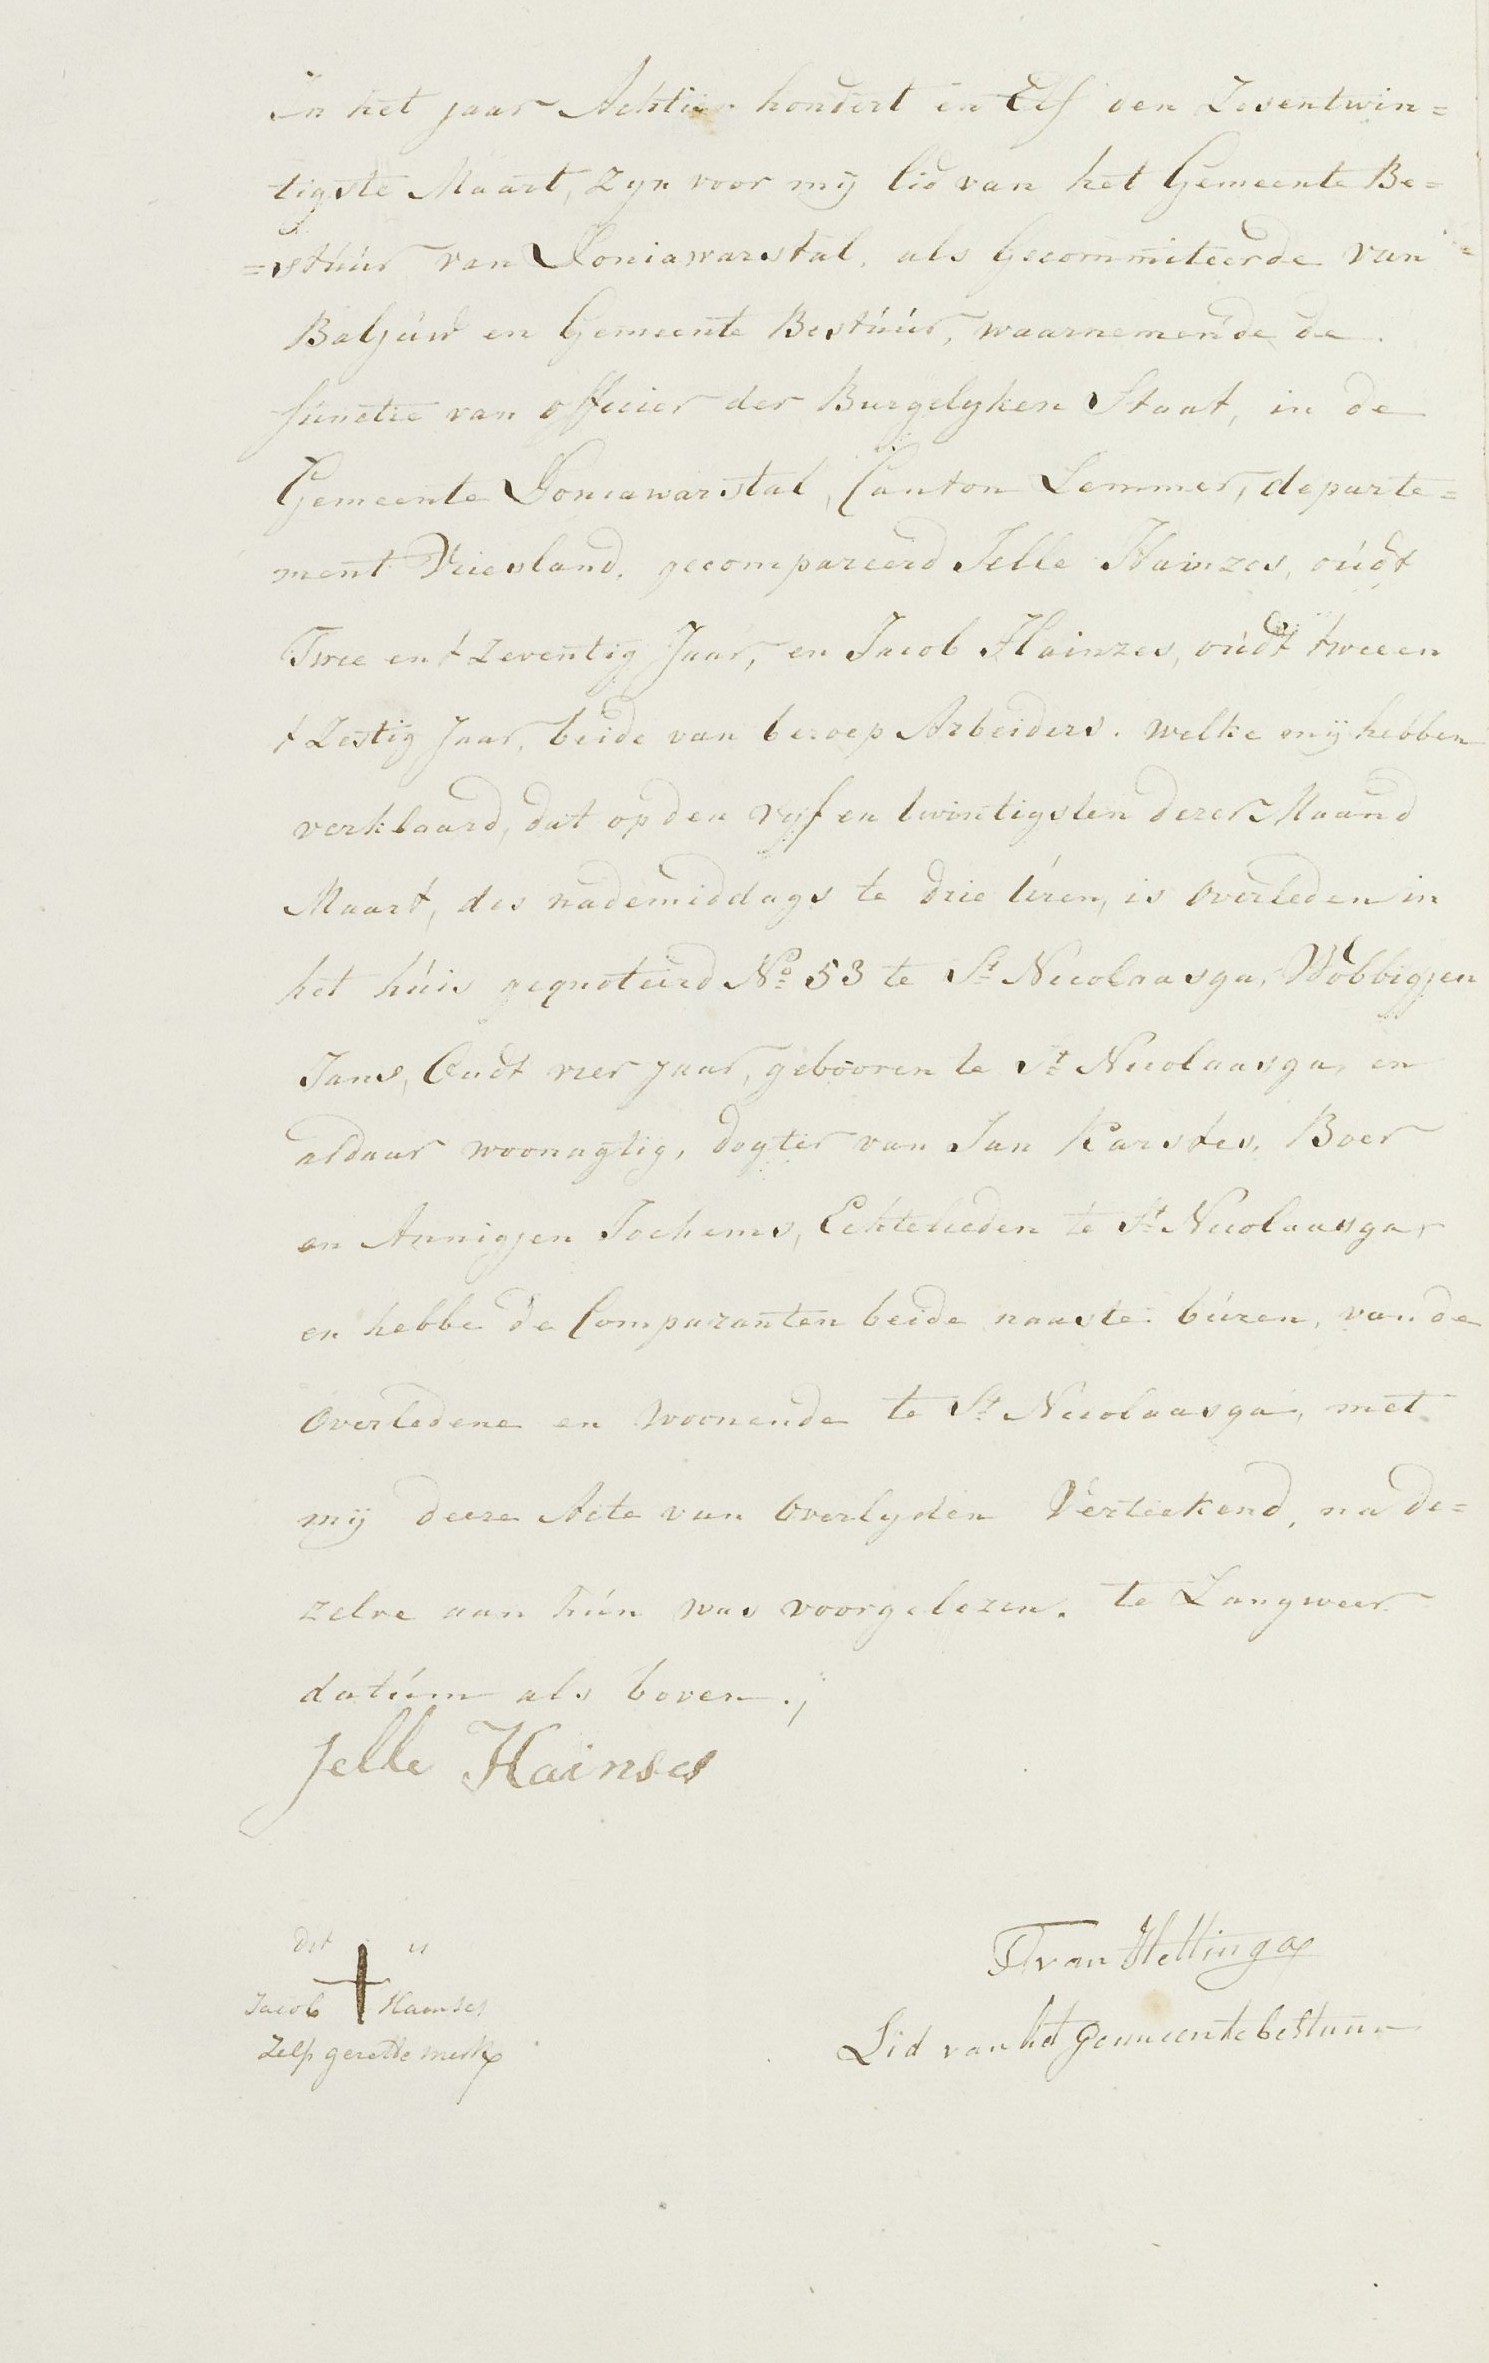 In het jaar Achtien hondert en Elf den Zesentwin=
tigste Maart, Zyn voor mij lid van het Gemeente Be=
=stuur van Doniawarstal, als Gecommiteerde van
Baljuw en Gemeente Bestuur, waarnemende de
functie van officier der Burgelyken Staat, in de
Gemeente Doniawarstal, Canton Lemmer, departe=
ment Vriesland. gecompareerd Jelle Hainzes, oudt
Twee en t Zeventig Jaar, en Jacob Hainzes, oudt twee en
t Zestig Jaar, beide van beroep Arbeiders. welke mij hebben
verklaard, dat op den vyf en twintigsten dezer Maand
Maart, des nademiddags te drie Uren, is Overleden in
het huis gequoteerd No. 53 te St. Nicolaasga, Wobbigjen
Jans, Oudt vier jaar, gebooren te St. Nicolaasga, en
aldaar woonagtig, dogter van Jan Karstes, Boer
en Annigjen Jochems, Echtelieden te St. Nicolaasga,
en hebbe de Comparanten beide naaste buren, van de
Overledene en woonende te St. Nicolaasga, met
mij deeze Acte van Overlyden Verteekend, na de=
zelve aan hun was voorgelezen. te Langweer
datum als boven.,
Jelle Hainses
dit is
Jacob Hainses
Zelf gezette merk
T van Hettinga
Lid van het Gemeentebestuur